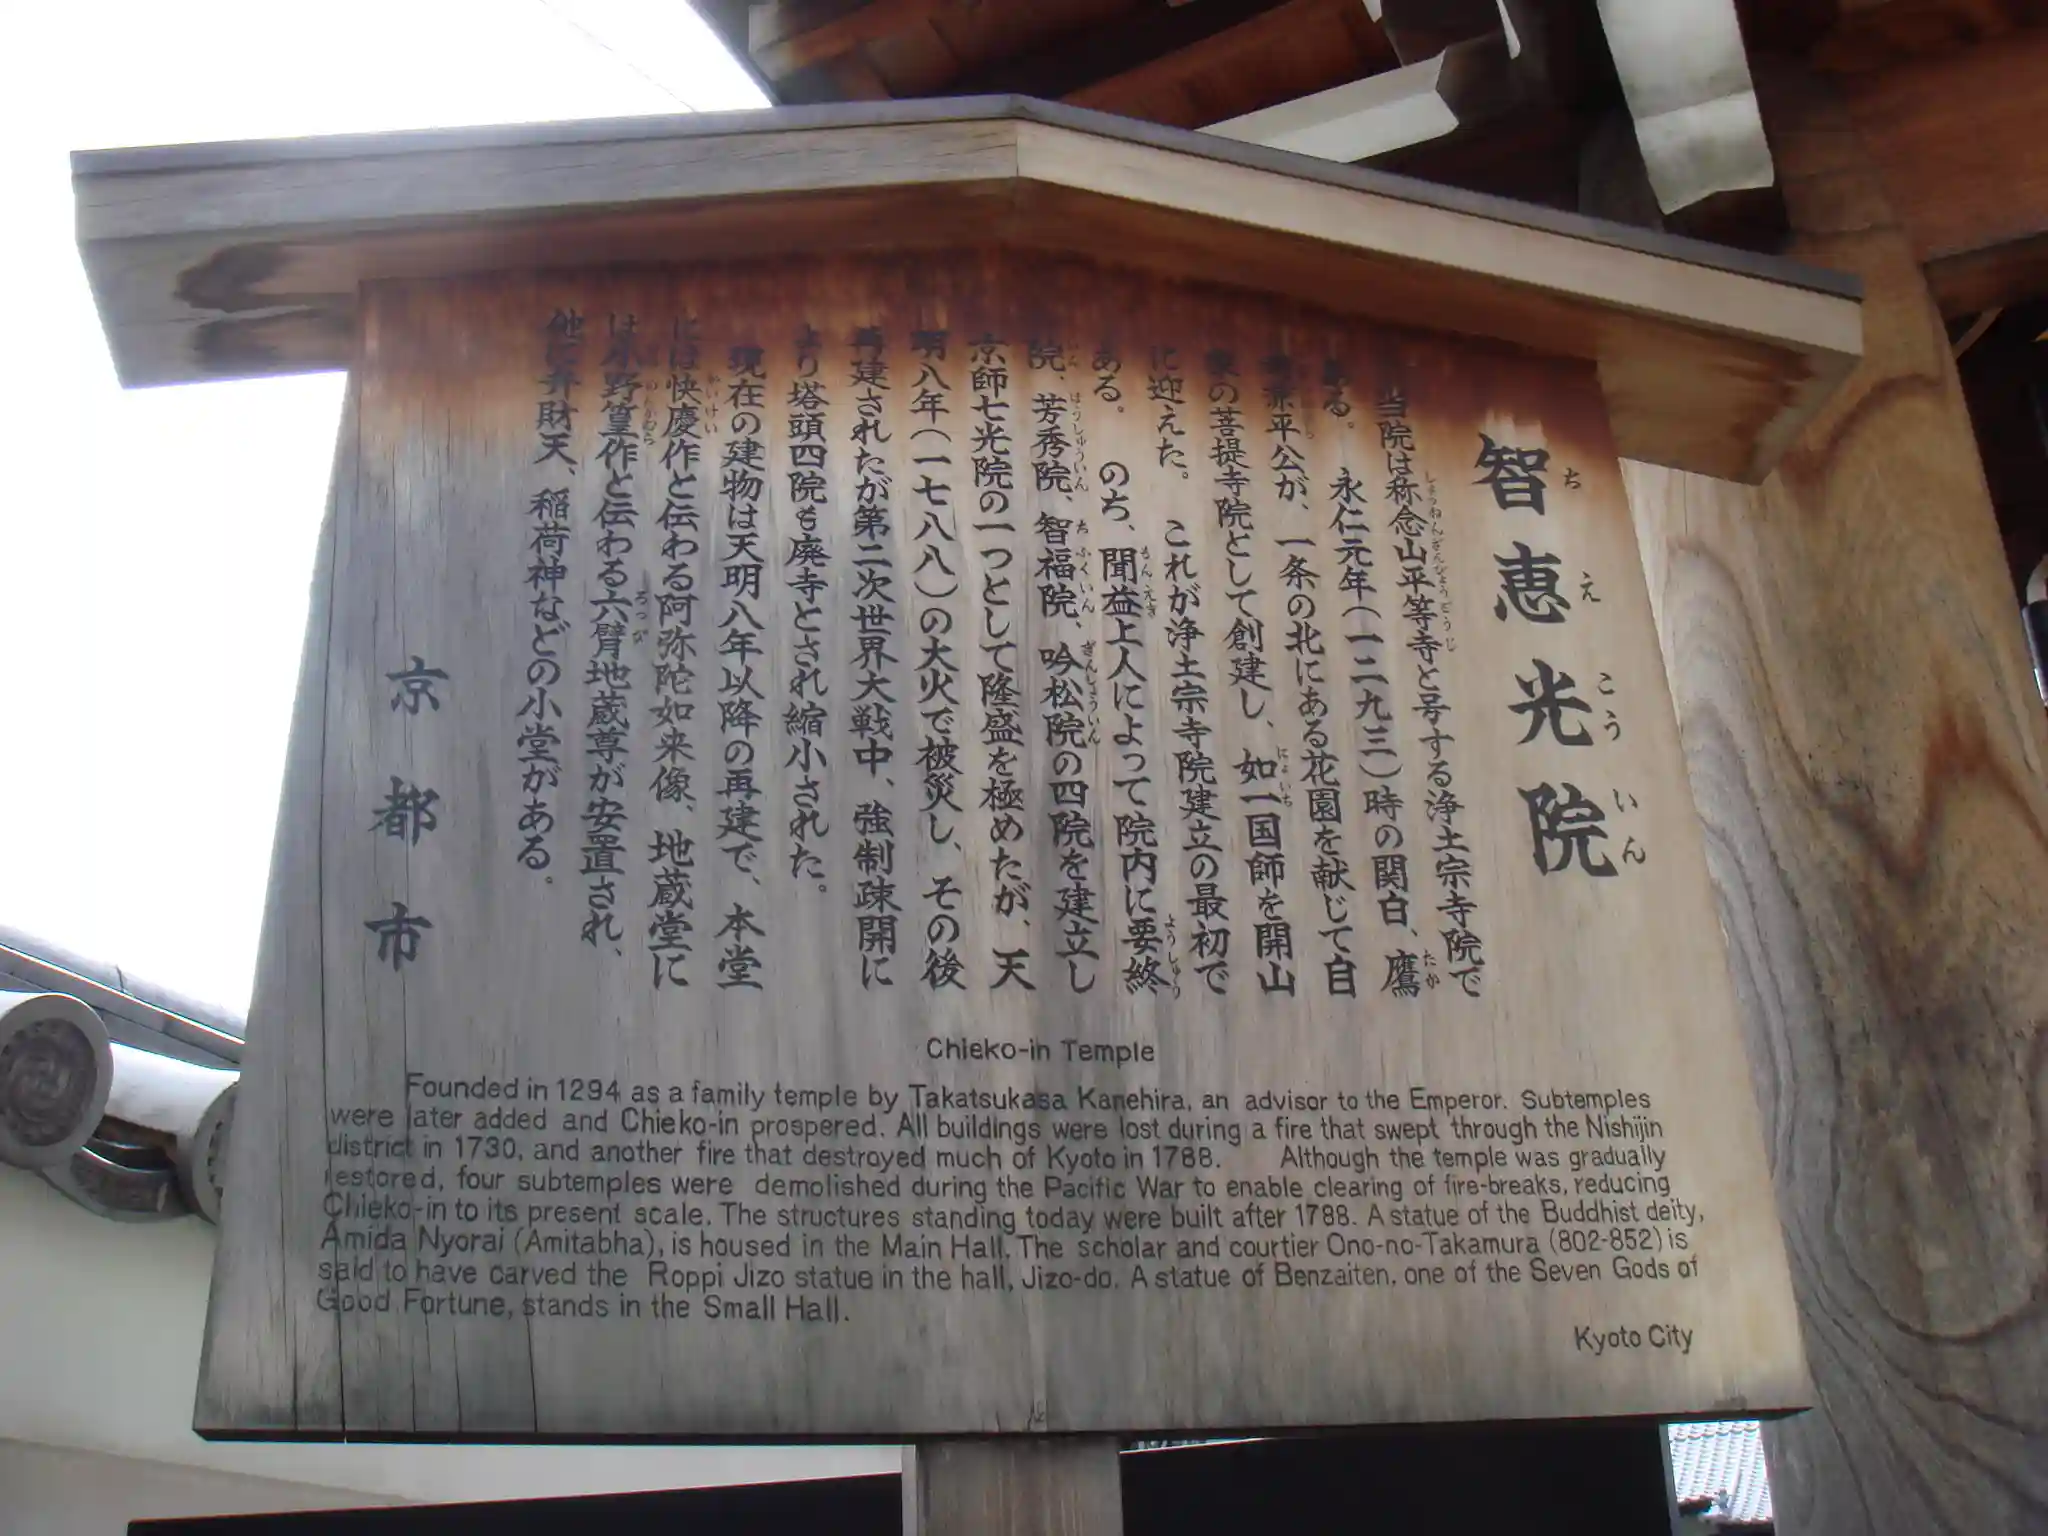 智恵光院
ち え こう いん
当院は称念山平等寺と号する浄土宗寺院で
ある。 永仁元年(一二九三)時の関白、鷹
司兼平公が、一条の北にある花園を献じて自
家の菩提寺院として創建し、如一国師を開山
に迎えた。 これが浄土宗寺院建立の最初で
ある。 のち、聞益上人によって院内に要終
院、芳秀院、智福院、吟松院の四院を建立し
京師七光院の一つとして隆盛を極めたが、天
明八年(一七八八)の大火で被災し、その後
再建されたが第二次世界大戦中、強制疎開に
より塔頭四院も廃寺とされ縮小された。
現在の建物は天明八年以降の再建で、本堂
には快慶作と伝わる阿弥陀如来像、地蔵堂に
は小野篁作と伝わる六臂地蔵尊が安置され、
他に弁財天、稲荷神などの小堂がある。
京都市
Chieko-in Temple
Founded in 1294 as a family temple by Takatsukasa Kanehira, an advisor to the Emperor. Subtemples
were later added and Chieko-in prospered. All buildings were lost during a fire that swept through the Nishijin
district in 1730, and another fire that destroyed much of Kyoto in 1788. Although the temple was gradually
restored, four subtemples were demolished during the Pacific War to enable clearing of fire-breaks, reducing
Chieko-in to its present scale. The structures standing today were built after 1788. A statue of the Buddhist deity,
Amida Nyorai (Amitabha), is housed in the Main Hall. The scholar and courtier Ono-no-Takamura (802-852) is
said to have carved the Roppi Jizo statue in the hall, Jizo-do. A statue of Benzaiten, one of the Seven Gods of
Good Fortune, stands in the Small Hall.
Kyoto City